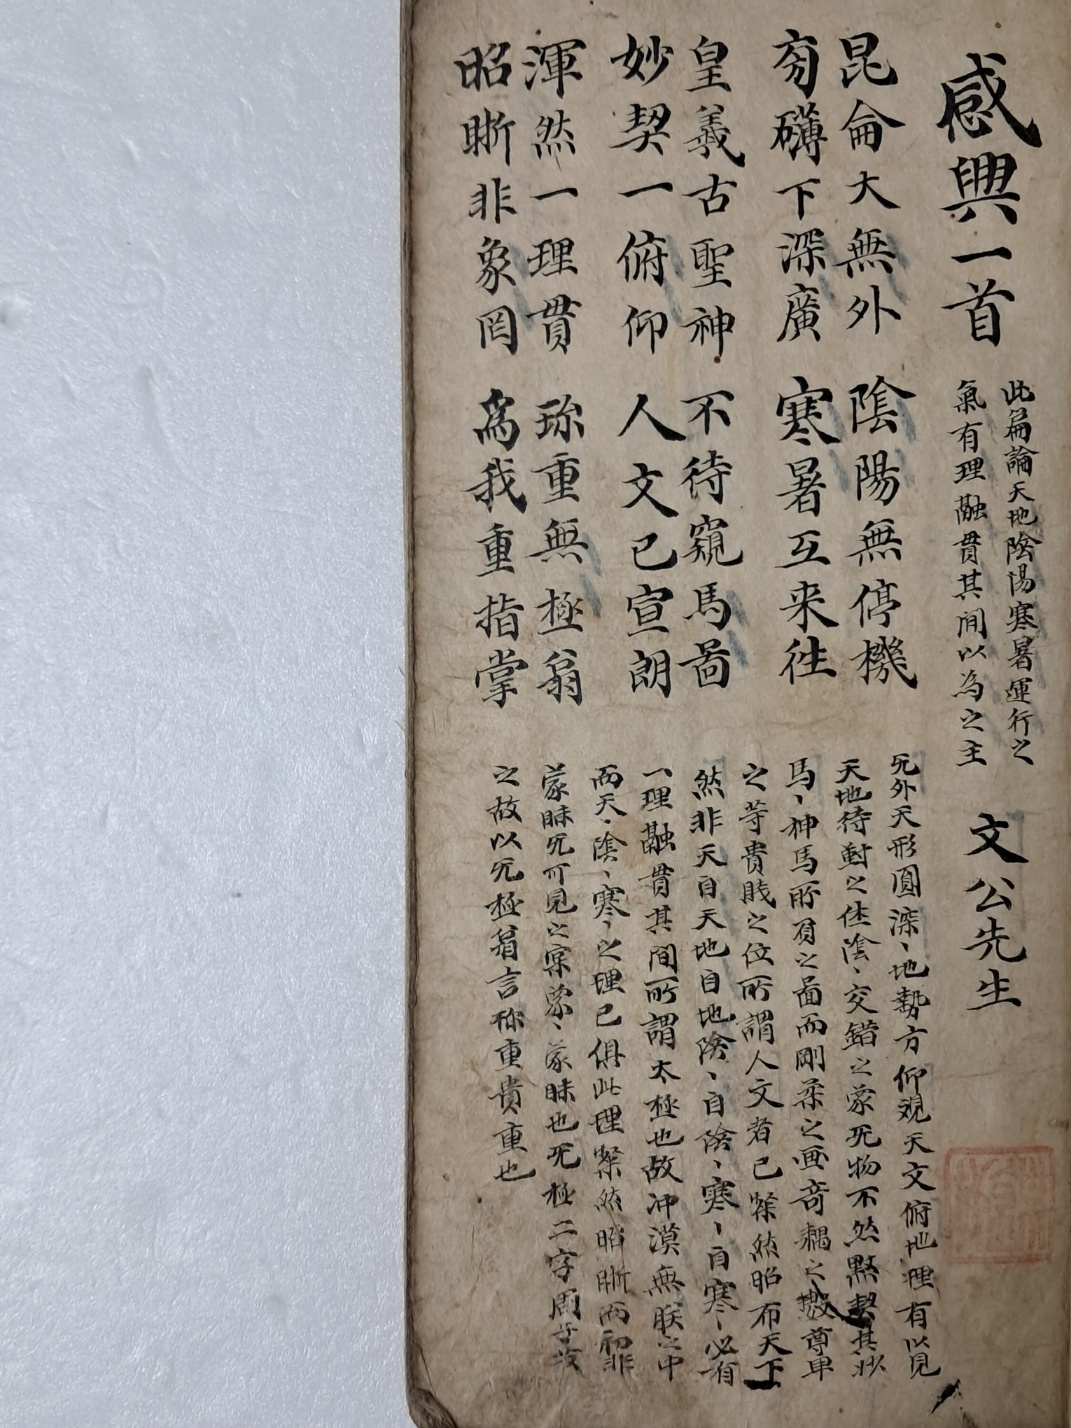 感興一首
此篇論天地陰陽寒暑運行之
氣有理融貫其間以為之主
文公先生
昆侖大無外 陰陽無停機
旁礴下深廣 寒暑互来往
皇羲古聖神 不待窺馬啚
妙契一俯仰 人文已宣朗
渾然一理貫 珎重無極翁
昭晰非象罔 為我重指掌
旡外天形圓深〻地勢方仰观天文俯地理有以見
天地待對之体陰〻交錯之家旡物不然黙契其妙
馬〻神馬所負之啚而剛柔之画竒耦之数尊卑
之等貴賎之位所謂人文者已粲然昭布天下
然非天自天地自地陰〻自陰〻寒〻自寒〻必有
一理融貫其間所謂太極也故冲漠無朕之中
而天〻陰〻寒〻之理已俱此理粲然昭晰而初非
蒙昧旡可見之 〻蒙昧也旡極二字周子
之故以旡極翁言珎重貴重也